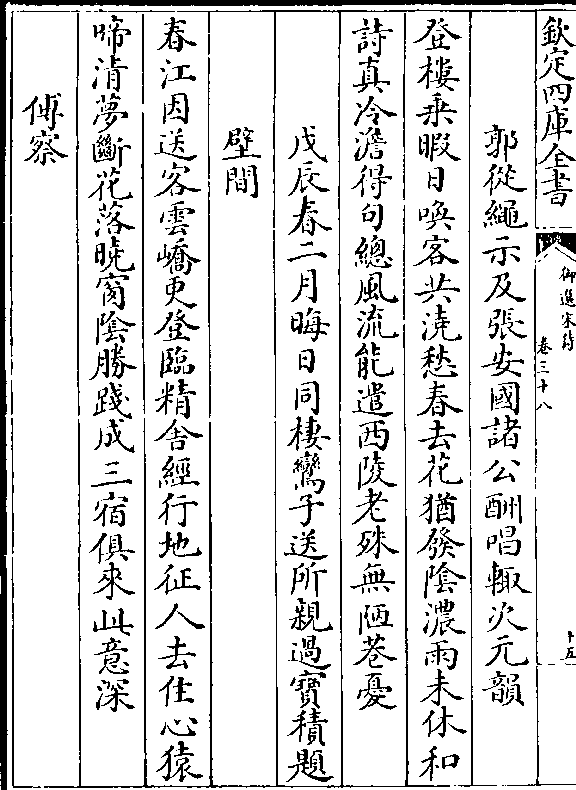 欽定四庫全書
御選宋詩
卷三十八
十五
郭從繩示及張安國諸公酬唱輙次元韻
登樓乗暇日喚客共澆愁春去花猶發陰濃雨未休和
詩真冷澹得句總風流能遣西陵老殊無陋巷憂
戊辰春二月晦日同棲鸞子送所親過寶積題
壁間
春江因送客雲嶠更登臨精舍經行地征人去住心猿
啼清夢斷花落曉窗陰勝踐成三宿俱來此意深
傅察